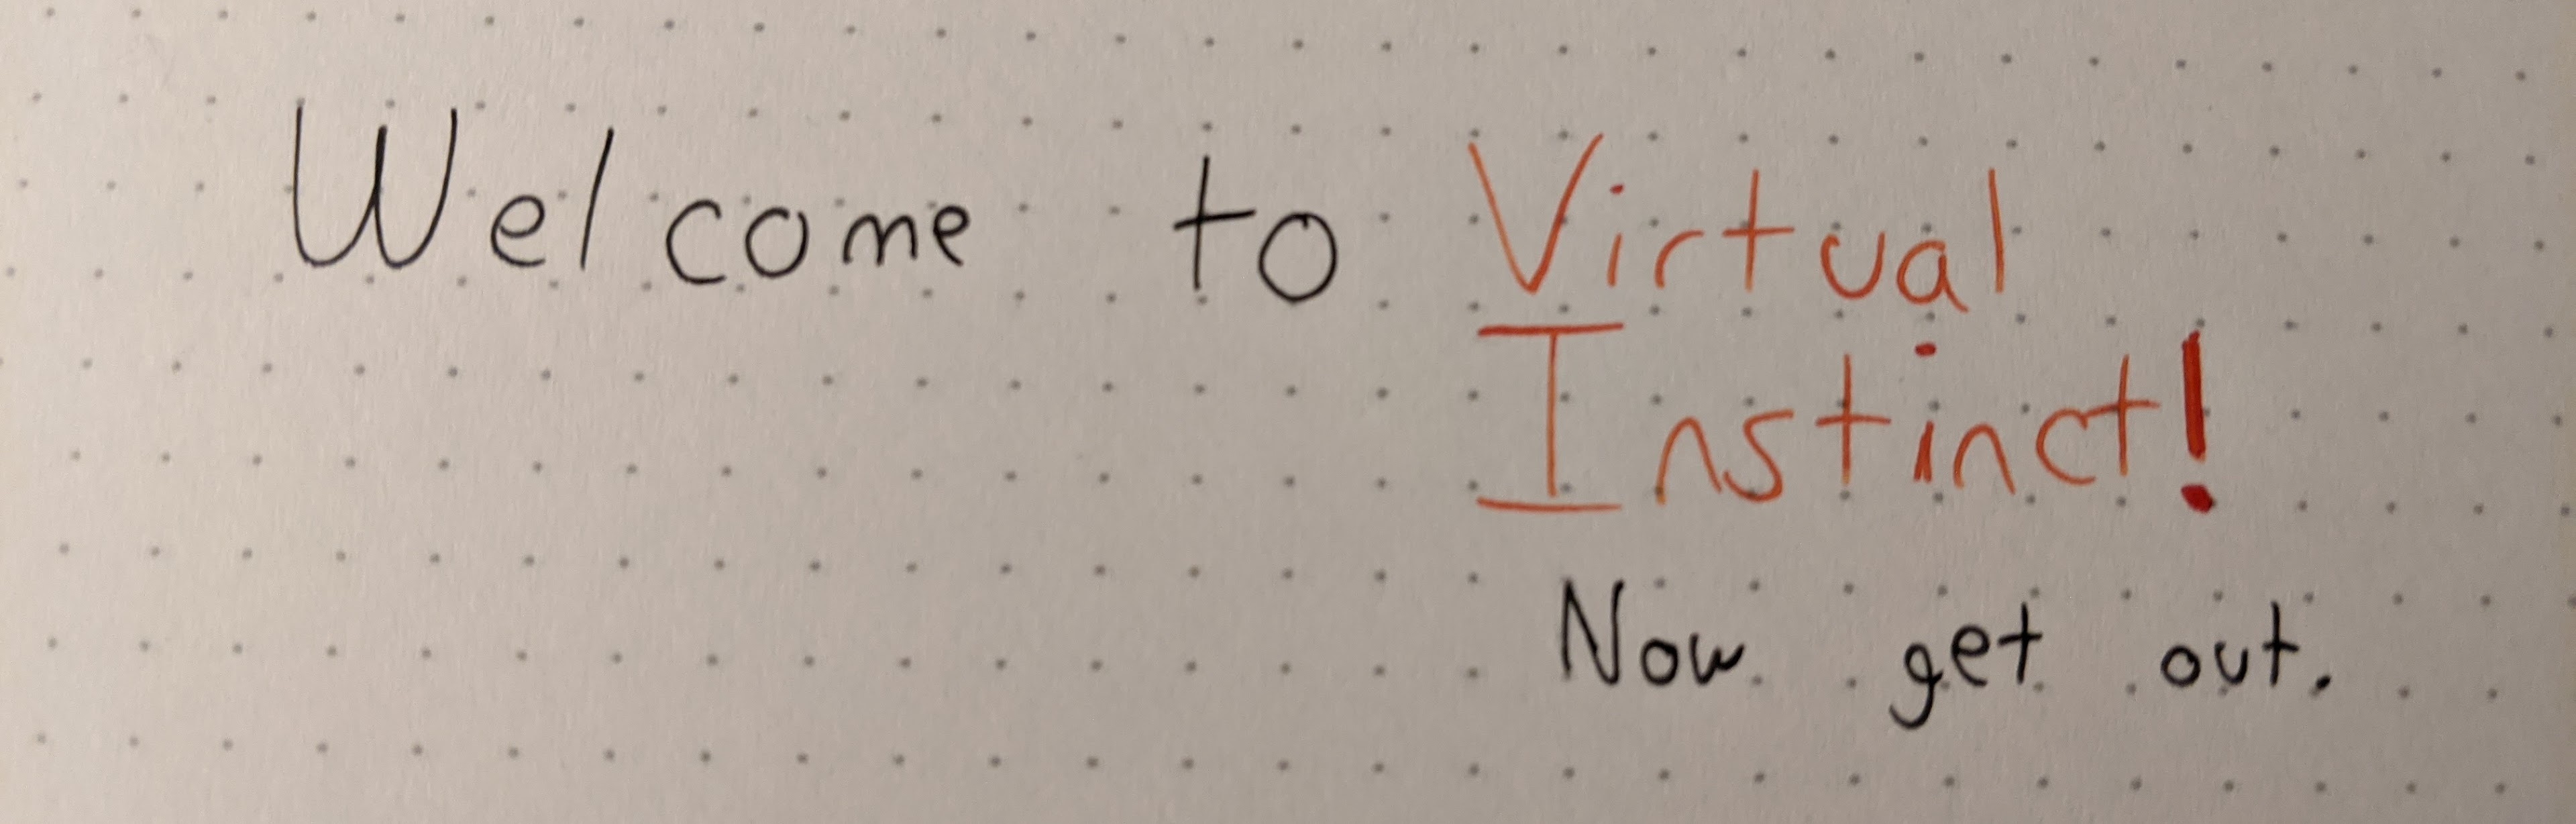 Welcome to Virtual
Instinct!
Now get out.